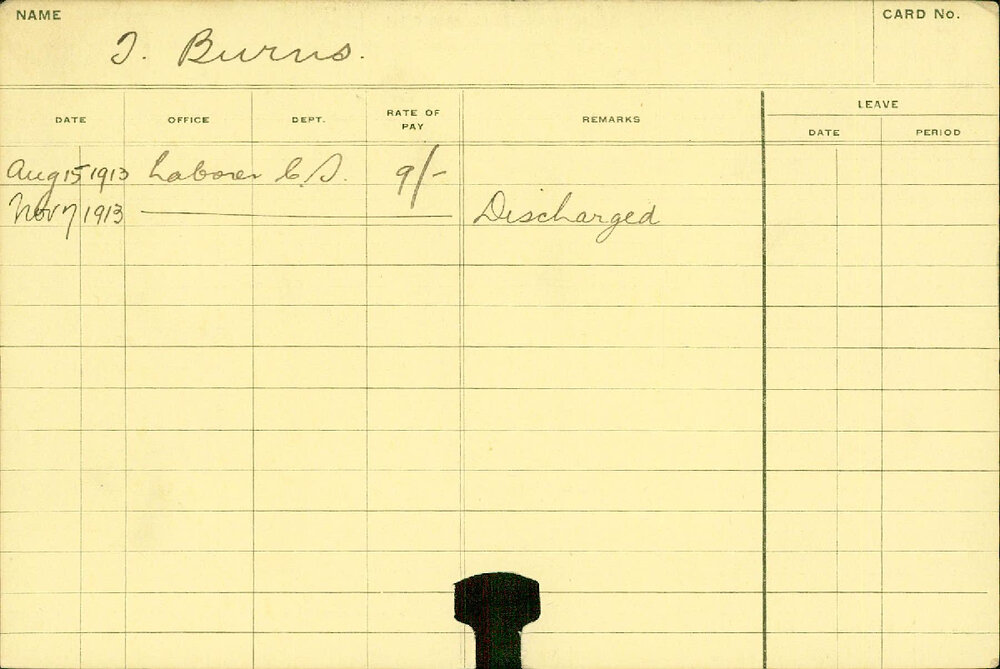 NAME
CARD No.
J. Burns.
DATE OFFICE DEPT. RATE OF PAY REMARKS LEAVE
DATE PERIOD
Aug 15 1913 Laborer C.S. 9/-
Nov 7 1913 Discharged